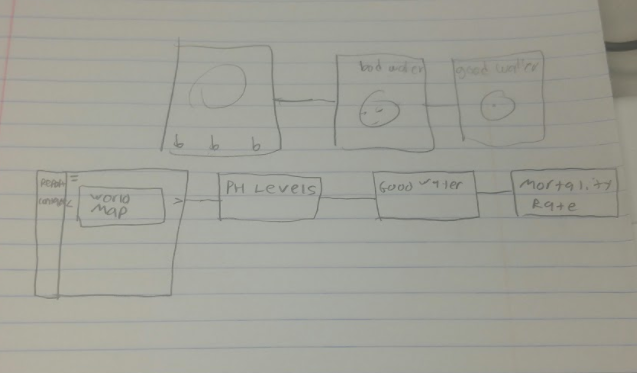 bad water
good water
b b b
world
Map
>
PH Levels
Good water
Mortality
Rate